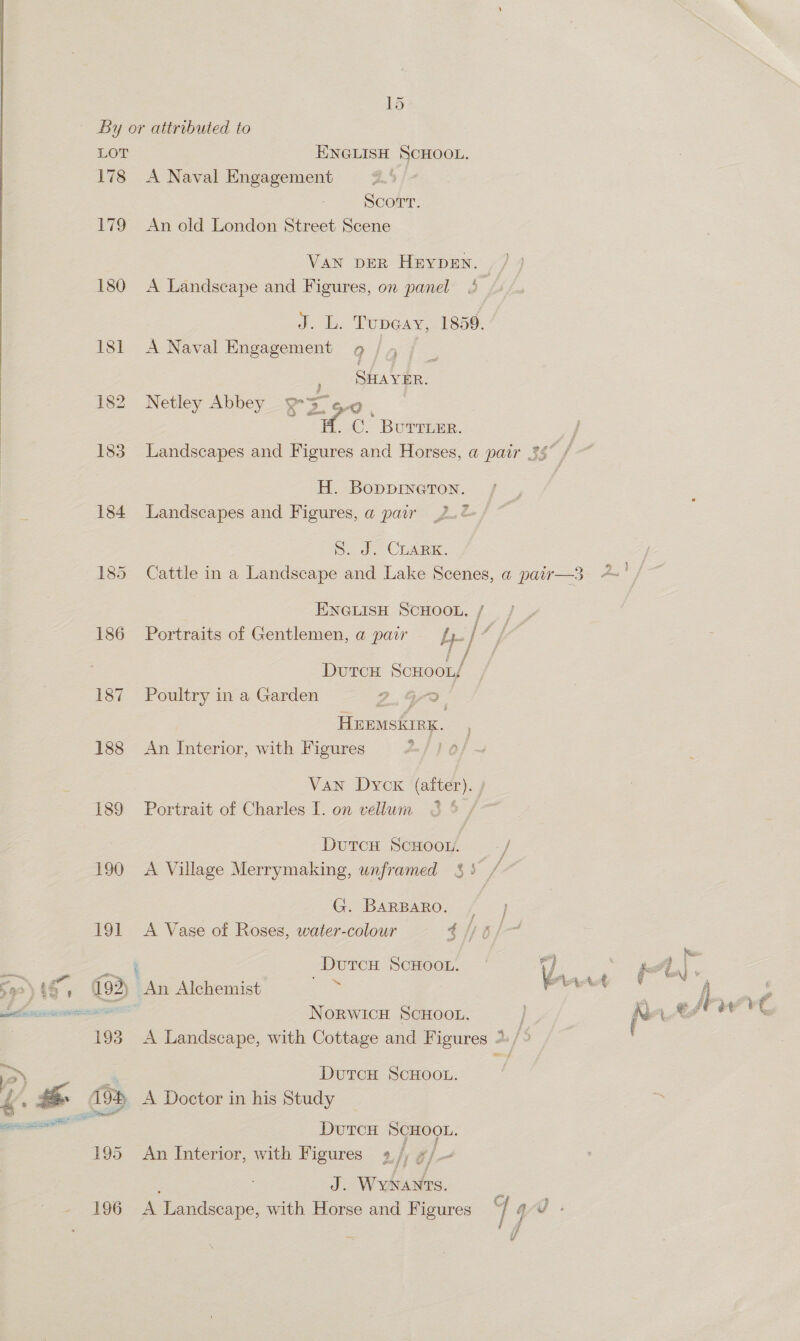 15
By or attributed to
LOT ENGLISH SCHOOL.
178 A Naval Engagement
SCOTT.
179 An old London Street Scene
VAN DER HEYDEN.
180 A Landscape and Figures, on panel
J. L. TUDGAY, 1859.
181 A Naval Engagement
SHAYER.
182 Netley Abbey
H. C. BUTTLER.
183 Landscapes and Figures and Horses, a pair
H. BODDINGTON.
184 Landscapes and Figures, a pair
S. J. CLARK.
185 Cattle in a Landscape and Lake Scenes, a pair—3
ENGLISH SCHOOL.
186 Portraits of Gentlemen, a pair
DUTCH SCHOOL
187 Poultry in a Garden
HEEMSKIRK.
188 An Interior, with Figures
VAN DYCK (after).
189 Portrait of Charles I. on vellum
DUTCH SCHOOL.
190 A Village Merrymaking, unframed
G. BARBARO.
191 A Vase of Roses, water-colour
DUTCH SCHOOL.
192 An Alchemist
NORWICH SCHOOL.
193 A Landscape, with Cottage and Figures
DUTCH SCHOOL.
194 A Doctor in his Study
DUTCH SCHOOL.
195 An Interior, with Figures
J. WYNANTS.
196 A Landscape, with Horse and Figures